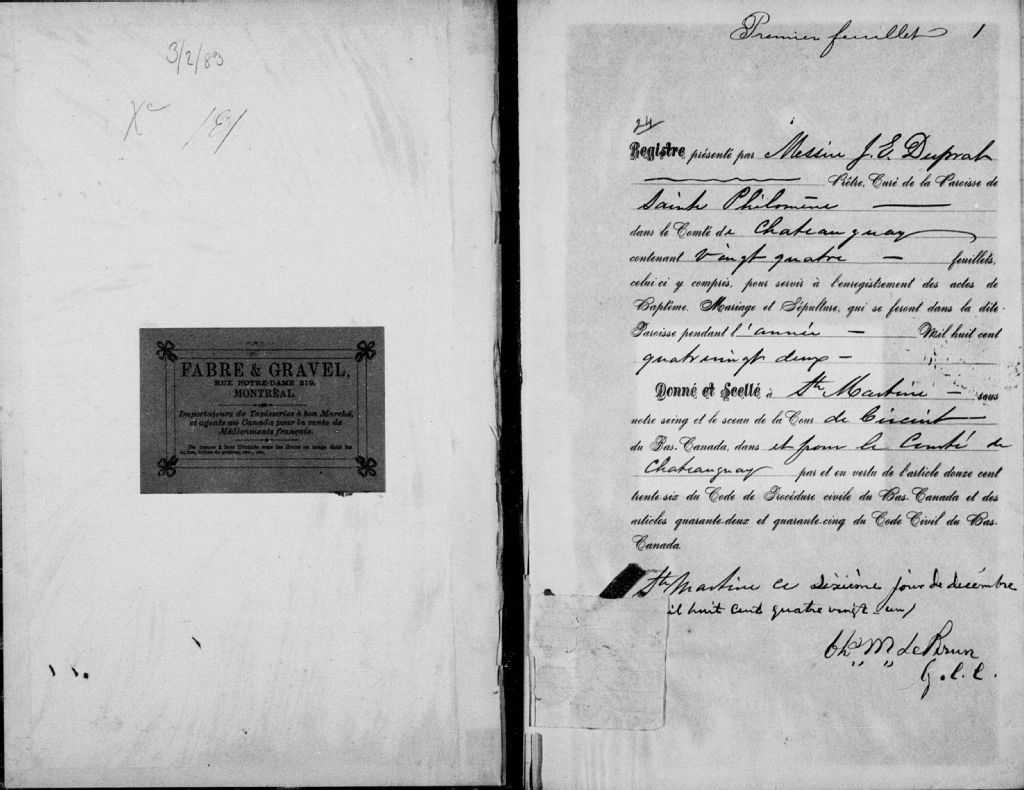 3/2/83
FABRE & GRAVEL,
RUE NOTRE-DAME 219,
MONTRÉAL.
Importateurs de Tapisseries à bon Marché,
et agents au Canada pour la vente de
Médicaments français.
On trouve à leur librairie tous les livres en usage dans les
écoles, livres de prières, etc., etc.
Premier feuillet 1
24
Registre présenté par Messire J. E. Duprat
Prêtre, Curé de la Paroisse de
Sainte Philomène
dans le Comté de Chateauguay
contenant vingt quatre — feuillets,
celui-ci y compris, pour servir à l'enregistrement des actes de
Baptême, Mariage et Sépulture, qui se feront dans la dite
Paroisse pendant l'année — Mil huit cent
quatrevingt deux —
Donné et Scellé à Ste Martine — sous
notre seing et le sceau de la Cour de Circuit
du Bas-Canada, dans et pour le Comté de
Chateauguay par et en vertu de l'article douze cent
trente-six du Code de Procédure civile du Bas-Canada et des
articles quarante-deux et quarante-cinq du Code Civil du Bas-
Canada.
Ste Martine ce sixième jour de décembre
il huit cent quatre vingt-un
Chs M LeBrun
G. C. C.